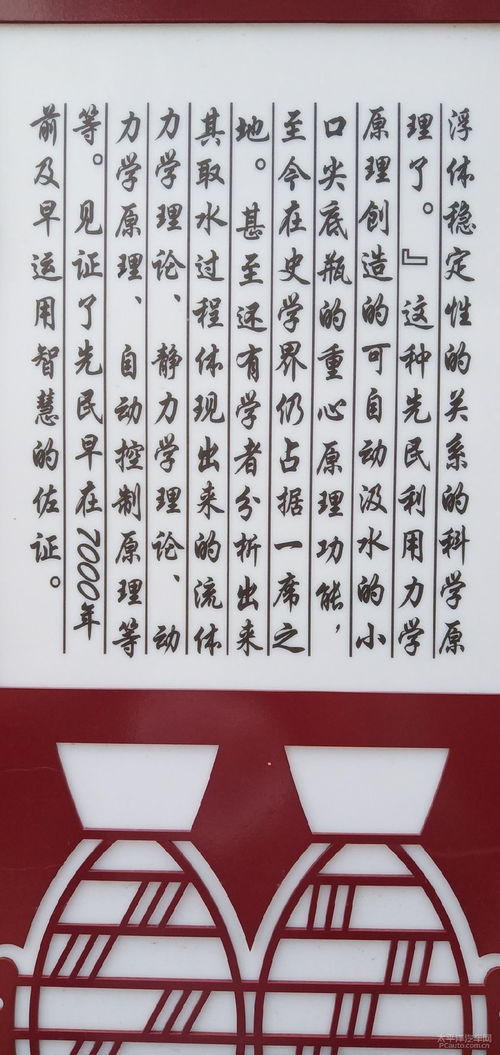 浮体稳定性的关系的科学原
理了。』这种先民利用力学
原理创造的可自动汲水的小
口尖底瓶的重心原理功能，
至今在史学界仍占据一席之
地。甚至还有学者分析出来
其取水过程体现出来的流体
力学理论、静力学理论、动
力学原理、自动控制原理等
等。见证了先民早在7000年
前及早运用智慧的佐证。
太平洋汽车网
PCauto.com.cn